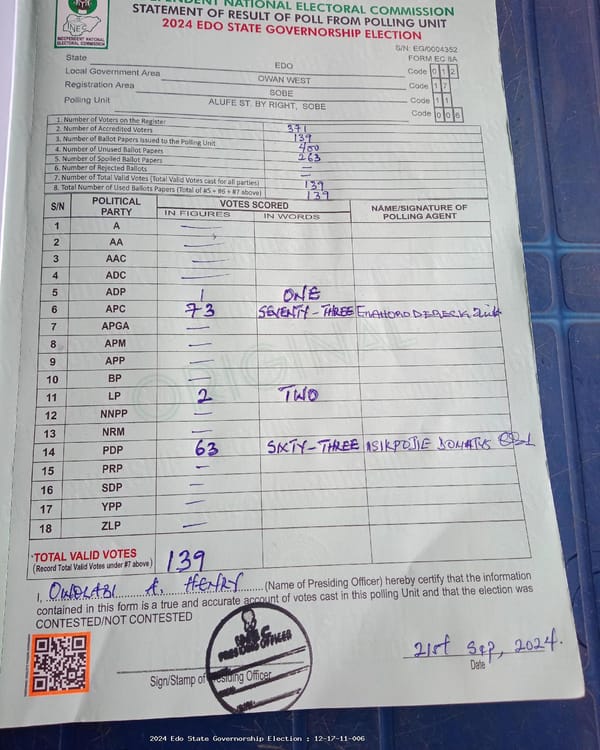 INDEPENDENT NATIONAL ELECTORAL COMMISSION
STATEMENT OF RESULT OF POLL FROM POLLING UNIT
2024 EDO STATE GOVERNORSHIP ELECTION
INEC
INDEPENDENT NATIONAL ELECTORAL COMMISSION
S/N: EG/0004352
FORM EC 8A
State EDO Code 0 1 2
Local Government Area OWAN WEST Code 1 7
Registration Area SOBE Code 1 1
Polling Unit ALUFE ST. BY RIGHT, SOBE Code 0 0 6
1. Number of Voters on the Register 371
2. Number of Accredited Voters 139
3. Number of Ballot Papers Issued to the Polling Unit 400
4. Number of Unused Ballot Papers 263
5. Number of Spoiled Ballot Papers —
6. Number of Rejected Ballots —
7. Number of Total Valid Votes (Total Valid Votes cast for all parties) 139
8. Total Number of Used Ballots Papers (Total of #5 + #6 + #7 above) 139
S/N POLITICAL PARTY VOTES SCORED NAME/SIGNATURE OF POLLING AGENT
IN FIGURES IN WORDS
1 A —
2 AA —
3 AAC —
4 ADC —
5 ADP 1 ONE
6 APC 73 SEVENTY-THREE ENAHORO DERECK
7 APGA —
8 APM —
9 APP —
10 BP —
11 LP 2 TWO
12 NNPP —
13 NRM —
14 PDP 63 SIXTY-THREE DONATUS
15 PRP —
16 SDP —
17 YPP —
18 ZLP —
ORIGINAL
TOTAL VALID VOTES 139
(Record Total Valid Votes under #7 above)
I, OWOLABI A. HENRY (Name of Presiding Officer) hereby certify that the information
contained in this form is a true and accurate account of votes cast in this polling Unit and that the election was
CONTESTED/NOT CONTESTED
INEC
PRESIDING OFFICER
21st Sep, 2024.
Sign/Stamp of Presiding Officer Date
2024 Edo State Governorship Election : 12-17-11-006